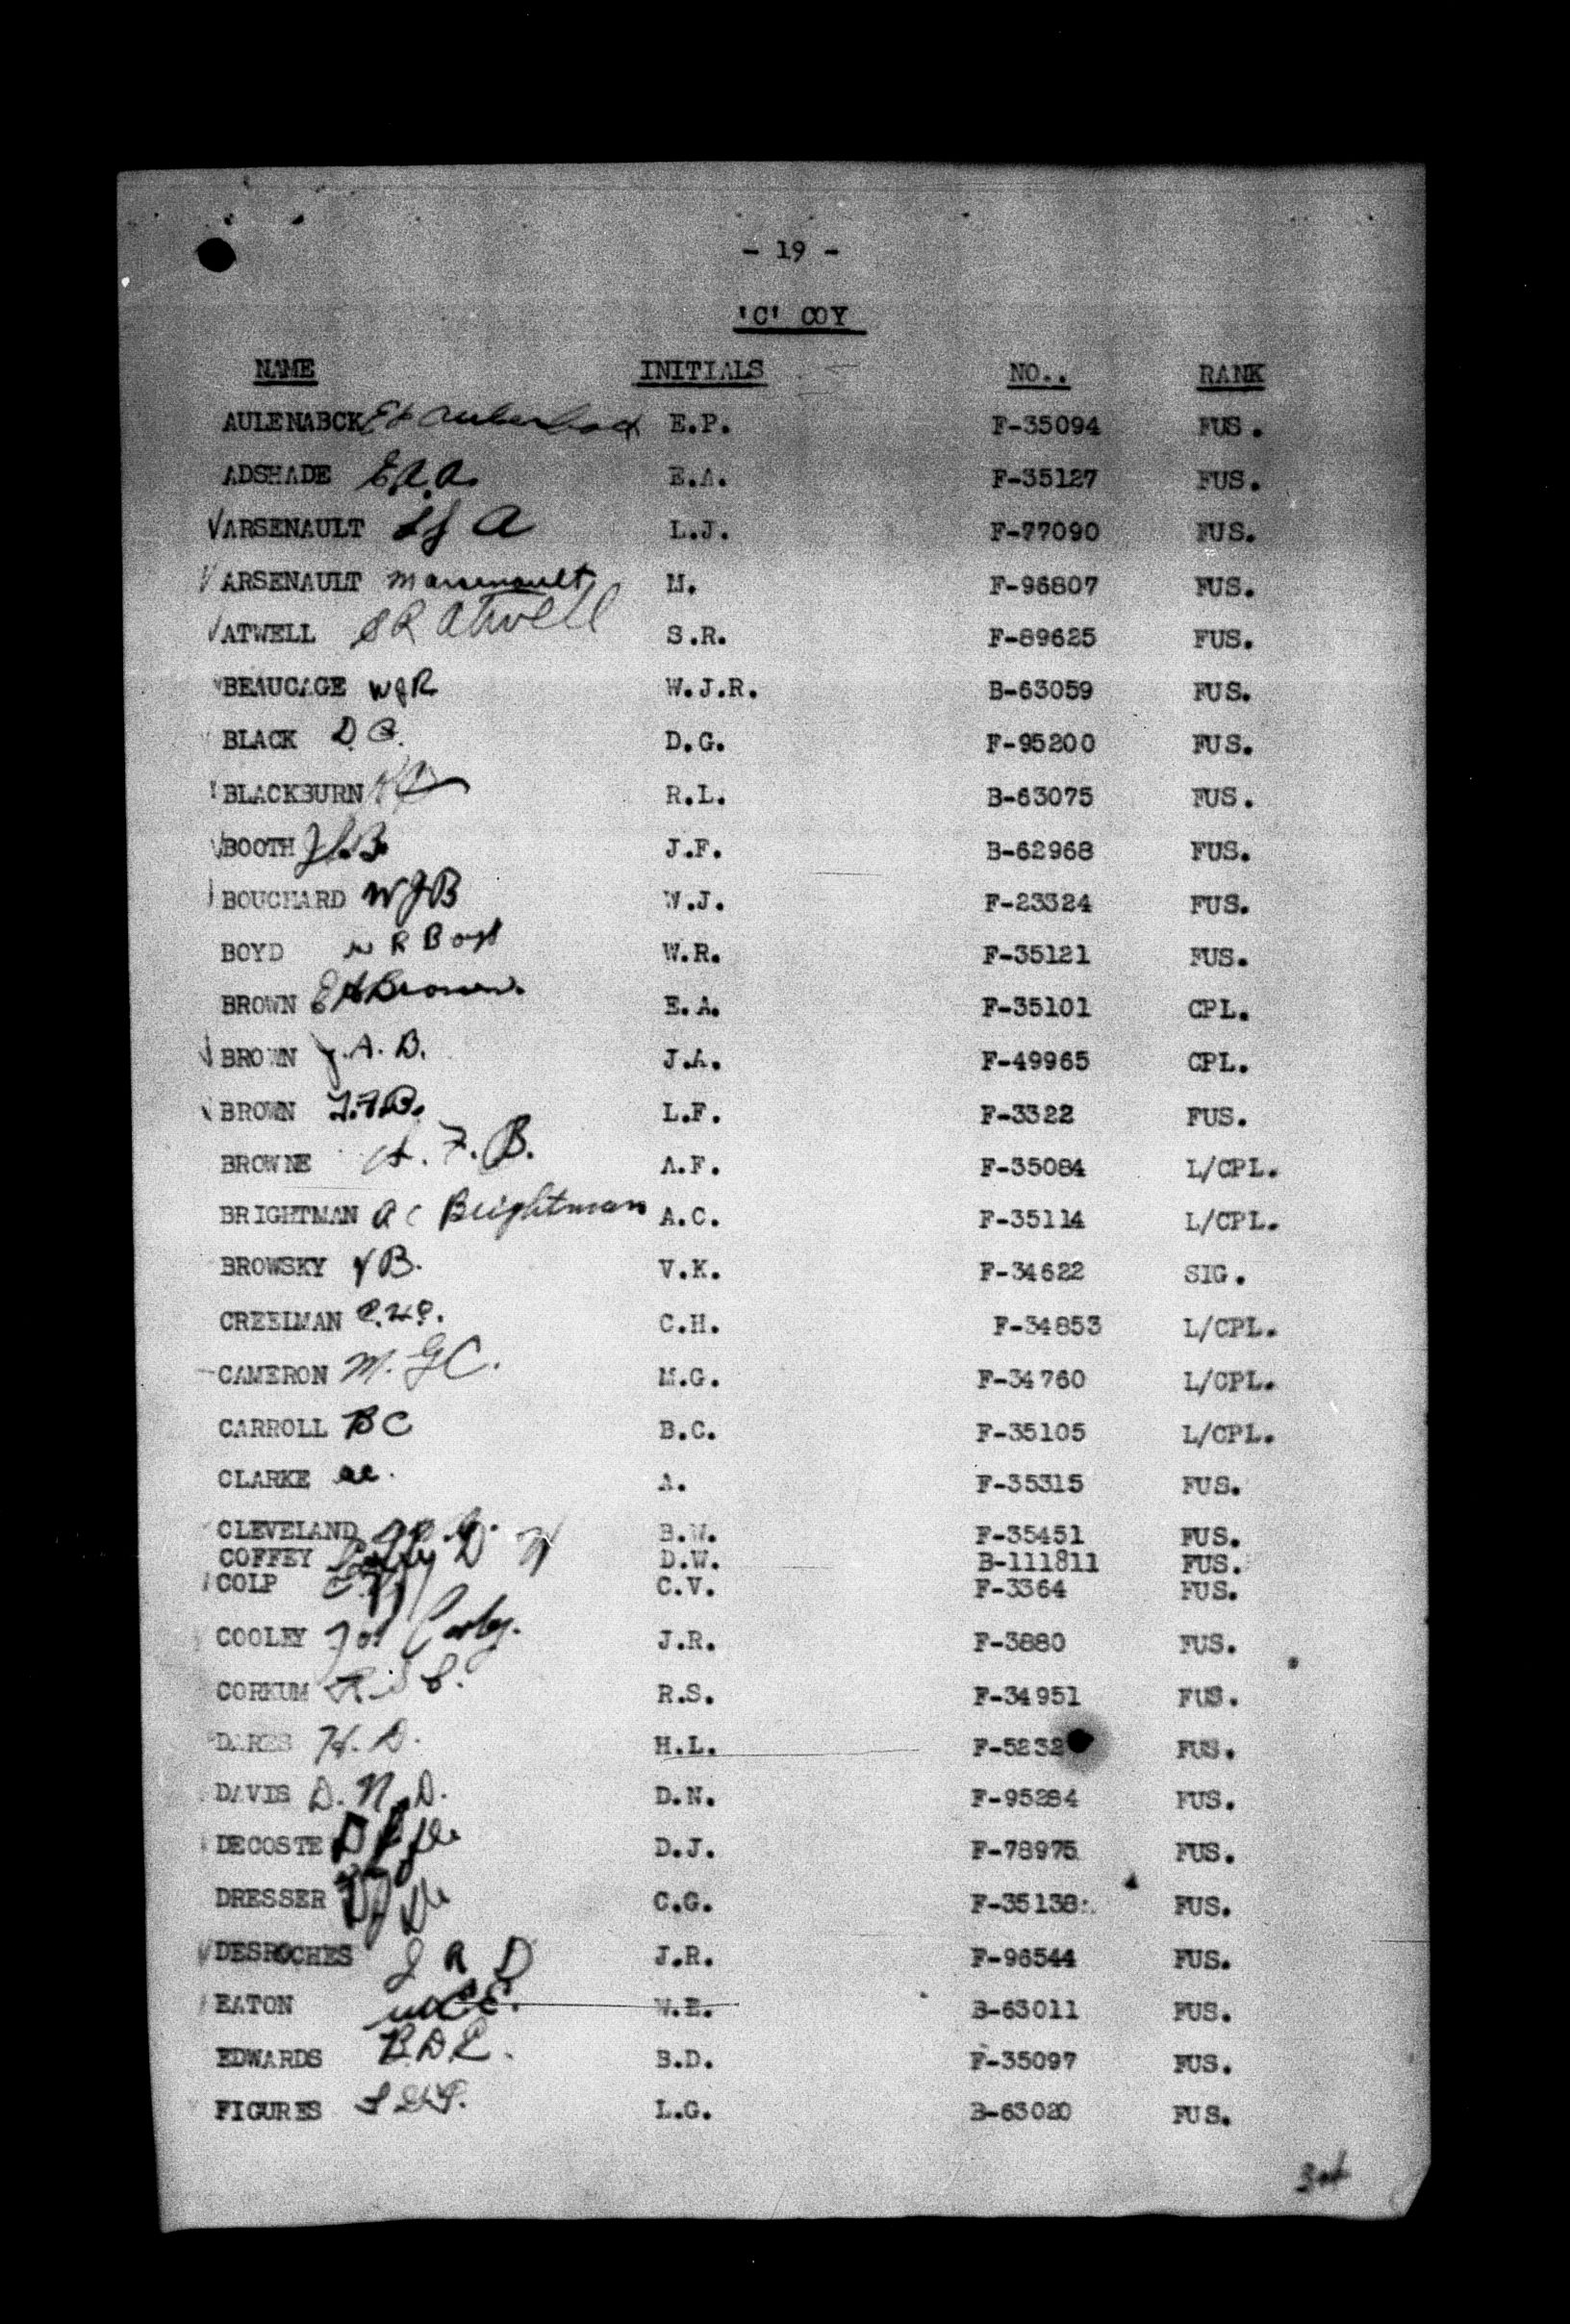 - 19 -
'C' COY
NAME INITIALS NO.. RANK
AULENABCK E.P. F-35094 FUS.
ADSHADE E.A.A. E.A. F-35127 FUS.
ARSENAULT L J A L.J. F-77090 FUS.
ARSENAULT M Arsenault M. F-96807 FUS.
ATWELL S R Atwell S.R. F-89625 FUS.
BEAUCAGE WJR W.J.R. B-63059 FUS.
BLACK D.G. F-95200 FUS.
BLACKBURN R.L. B-63075 FUS.
BOOTH J.F. B-62968 FUS.
BOUCHARD WJB W.J. F-23324 FUS.
BOYD W R Boyd W.R. F-35121 FUS.
BROWN EA Brown. E.A. F-35101 CPL.
BROWN J.A.B. J.A. F-49965 CPL.
BROWN L.F.B. L.F. F-3322 FUS.
BROWNE A.F.B. A.F. F-35084 L/CPL.
BRIGHTMAN A C Brightman A.C. F-35114 L/CPL.
BROWSKY V B. V.K. F-34622 SIG.
CREELMAN C.H.C. C.H. F-34853 L/CPL.
CAMERON M.G C. M.G. F-34760 L/CPL.
CARROLL B C B.C. F-35105 L/CPL.
CLARKE ac. A. F-35315 FUS.
CLEVELAND B.W. F-35451 FUS.
COFFEY Coffey D W D.W. B-111811 FUS.
COLP C.V. F-3364 FUS.
COOLEY Cooley. J.R. F-3880 FUS.
CORKUM R.S.C. R.S. F-34951 FUS.
DARES H.D. H.L. F-5232 FUS.
DAVIS D.N.D. D.N. F-95284 FUS.
DECOSTE D.J. F-78975 FUS.
DRESSER C.G. F-35138 FUS.
DESROCHES J R D J.R. F-96544 FUS.
EATON W.E. B-63011 FUS.
EDWARDS B.D.E. B.D. F-35097 FUS.
FIGURES L.G. B-63020 FUS.